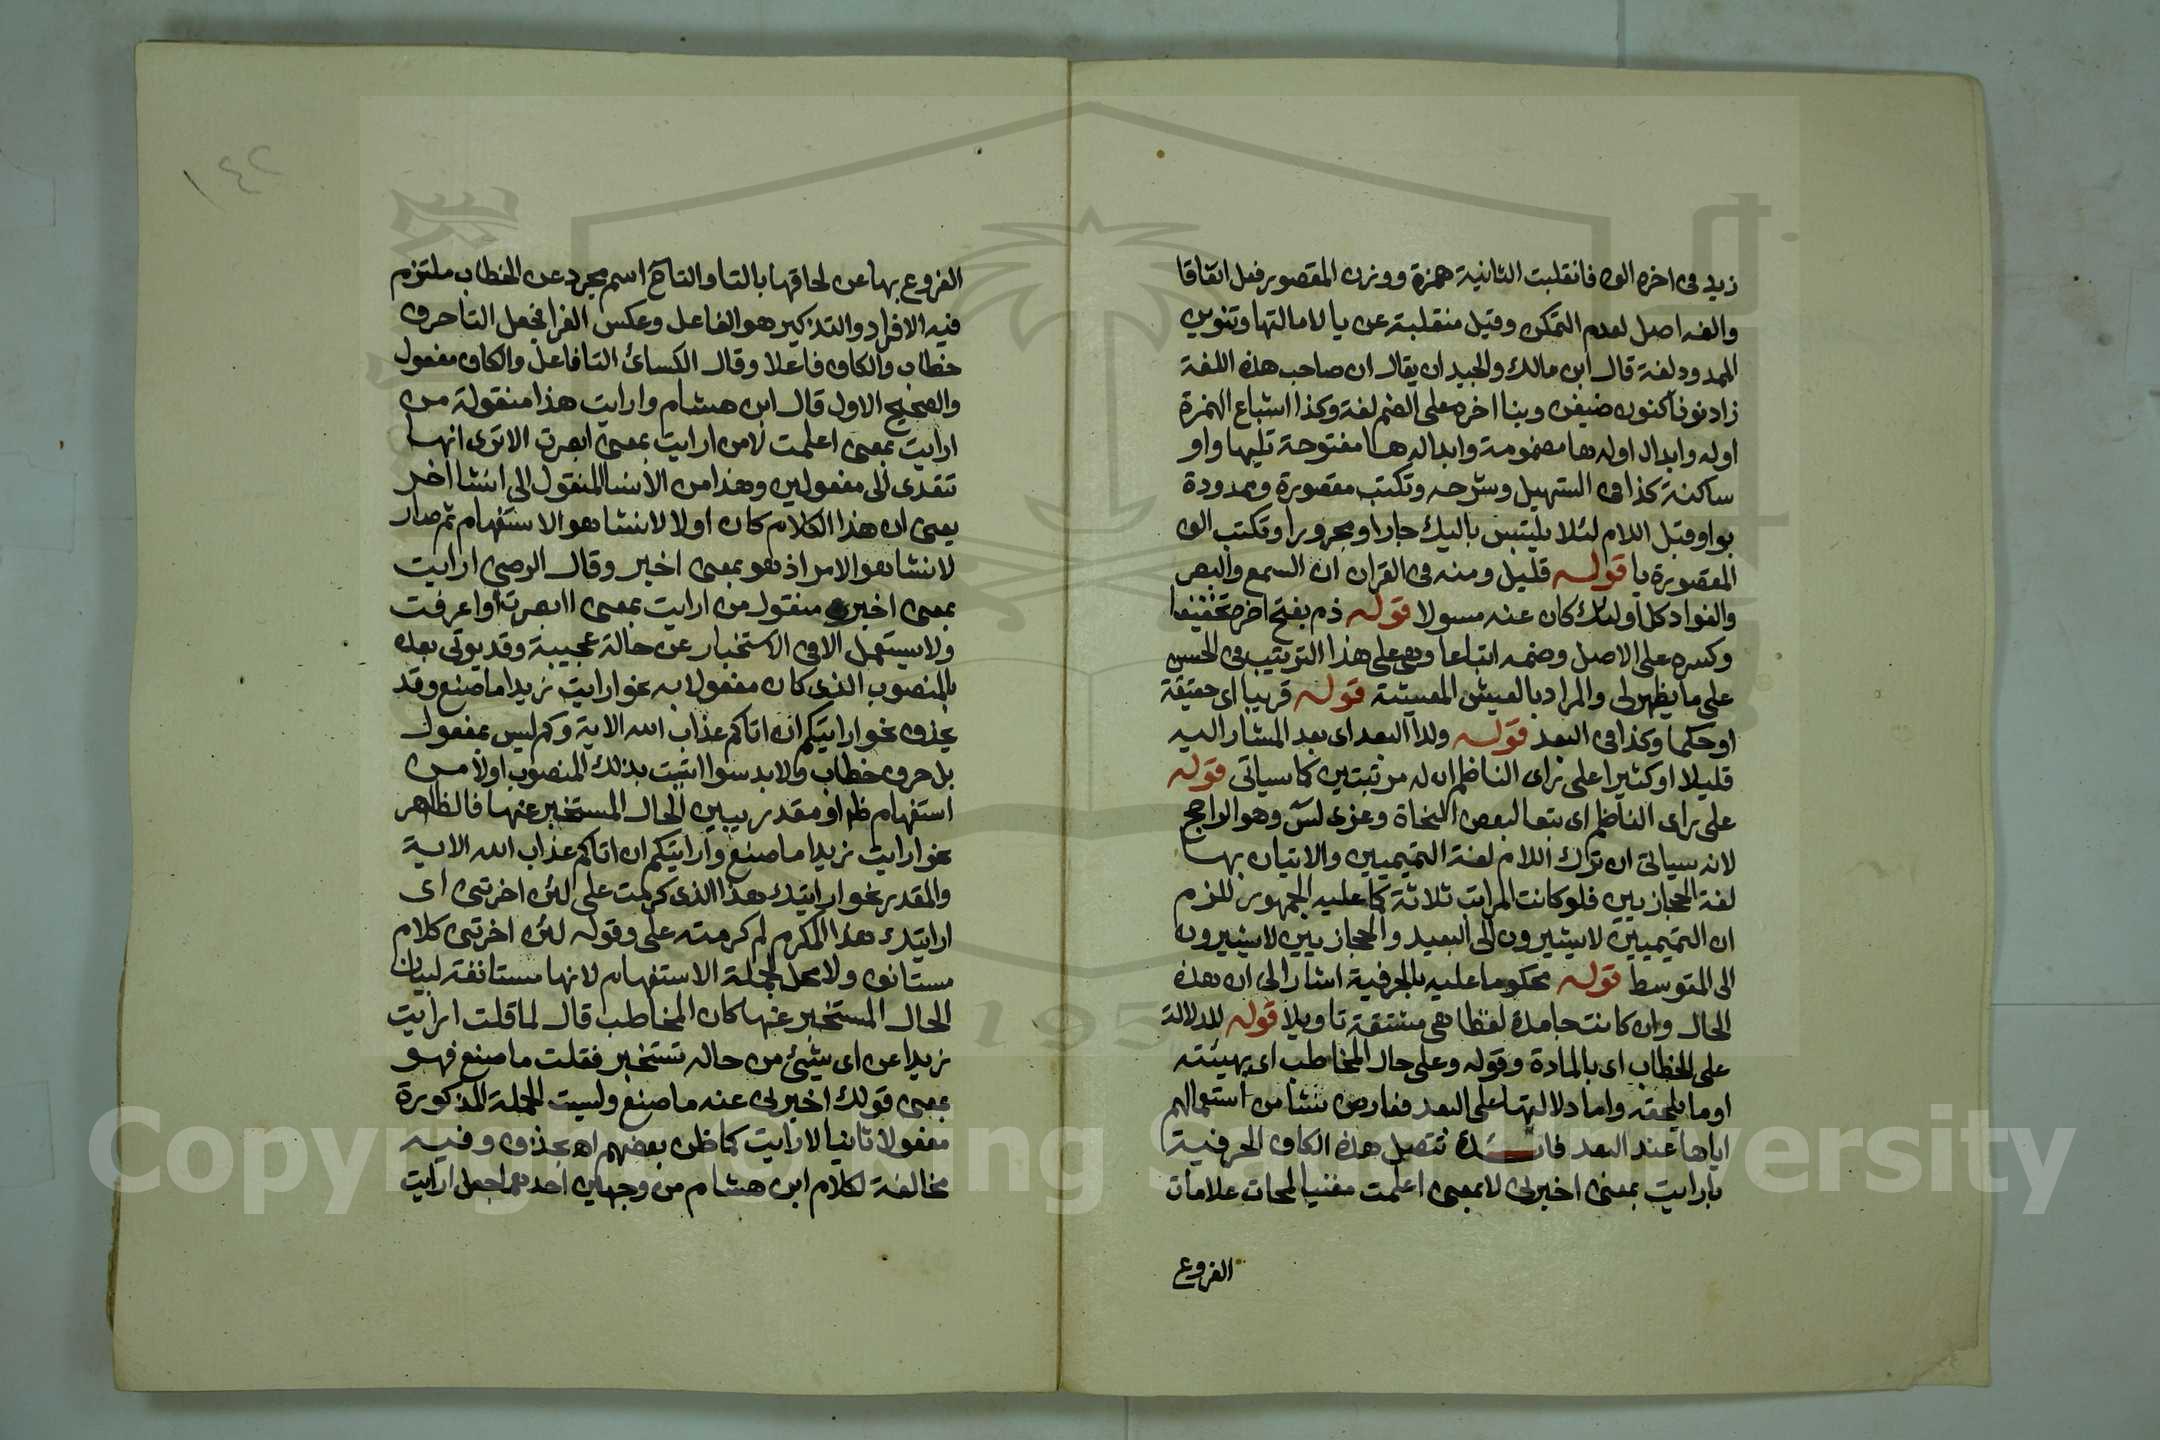 زيد فى اخره الف فانقلبت الثانية همزة ووزن المقصور فعل اتفاقا
والفه اصل لعدم التمكن وقيل منقلبة عن يا لامالتها وتنوين
الممدود لغة قال ابن مالك والجيد ان يقال ان صاحب هذه اللغة
زاد نونا كنون ضيفن وبنا اخره على الضم لغة وكذا اشباع الهمزة
اوله وابدال اوله ها مضمومة وابداله هـا مفتوحة تليها واو
ساكنة كذا فى التسهيل وشرحه وتكتب مقصورة وممدودة
بواو قبل اللام لئلا يلتبس باليك جارا ومجرورا وتكتب الف
المقصورة يا قوله قليل ومنه فى القران ان السمع والبصر
والفواد كل اولئك كان عنه مسولا قوله ذم بفتح اخره تخفيفا
وكسره على الاصل وضمه اتباعا وهى على هذا الترتيب فى الحسن
على ما يظهر لى والمراد بالعيش المعيشة قوله قريبا اى حقيقة
او حكما وكذا فى البعد قوله ولذا البعد اى بعد المشار اليه
قليلا او كثيرا على راى الناظم ان له مرتبتين كما سياتى قوله
على راى الناظم اى تبعا لبعض النحاة وعزى لس وهو الراجح
لانه سياتى ان ترك اللام لغة التميميين والاتيان بهـا
لغة الحجازيين فلو كانت المراتب ثلاثة كما عليه الجمهور للزم
ان التميميين لا يشيرون الى البعيد والحجازيين لا يشيرون
الى المتوسط قوله محكوما عليه بالحرفية اشار الى ان هذه
الحال وان كانت جامدة لفظا هى مشتقة تاويلا قوله للدلالة
على الخطاب اى بالمادة وقوله وعلى حال المخاطب اى بهيئته
او ما يلحقه واما دلالتها على البعد فعارض نشا من استعمالهم
اياها عند البعد فائـدة تتصل هذه الكاف الحرفية
بارايت بمعنى اخبرنى لا بمعنى اعلمت مغنيا لحاق علامات
الفروع
١٤٢
الفروع بها عن لحاقها بالتا والتاح اسم مجرد عن الخطاب ملتزم
فيه الافراد والتذكير هو الفاعل وعكس الفرا فجعل التا حرف
خطاب والكاف فاعلا وقال الكسائى التا فاعل والكاف مفعول
والصحيح الاول قال ابن هشام وارايت هذا منقولة من
ارايت بمعنى اعلمت لا من ارايت بمعنى ابصرت الا ترى انهـا
تتعدى الى مفعولين وهذا من الانشا المنقول الى انشا اخر
يعنى ان هذا الكلام كان اولا لانشا هو الاستفهام ثم صار
لانشا هو الامر اذ هو بمعنى اخبر وقال الرضى ارايت
بمعنى اخبر منقول من ارايت بمعنى اابصرت او اعرفت
ولا يستعمل الا فى الاستخبار عن حالة عجيبة وقد يوتى بعده
بالمنصوب الذى كان مفعولا به نحو ارايت زيدا ما صنع وقد
يحذف نحو ارايتكم ان اتاكم عذاب الله الاية وكم ليس بمفعول
بل حرف خطاب ولا بد سوا اتيت بذلك المنصوب اولا مـن
استفهام ظاهر او مقدر يبين الحال المستخبر عنهـا فالظاهر
نحو ارايت زيدا ما صنع وارايتكم ان اتاكم عذاب الله الاية
والمقدر نحو ارايتك هذا الذى كرمت على لئن اخرتنى اى
ارايتك هذا المكرم لم كرمته على وقوله لئن اخرتنى كلام
مستانف ولا محل لجملة الاستفهام لانها مستانفة لبيان
الحال المستخبر عنها كان المخاطب قال لما قلت ارايت
زيدا عن اى شيئ من حاله تستخبر فقلت ما صنع فهـو
بمعنى قولك اخبرنى عنه ما صنع وليست الجملة المذكورة
مفعولا ثانيا لارايت كما ظن بعضهم اهـ بحذف وفيـه
مخالفة لكلام ابن هشام من وجهين احدهما جعل ارايت
Copyright © King Saud University
195